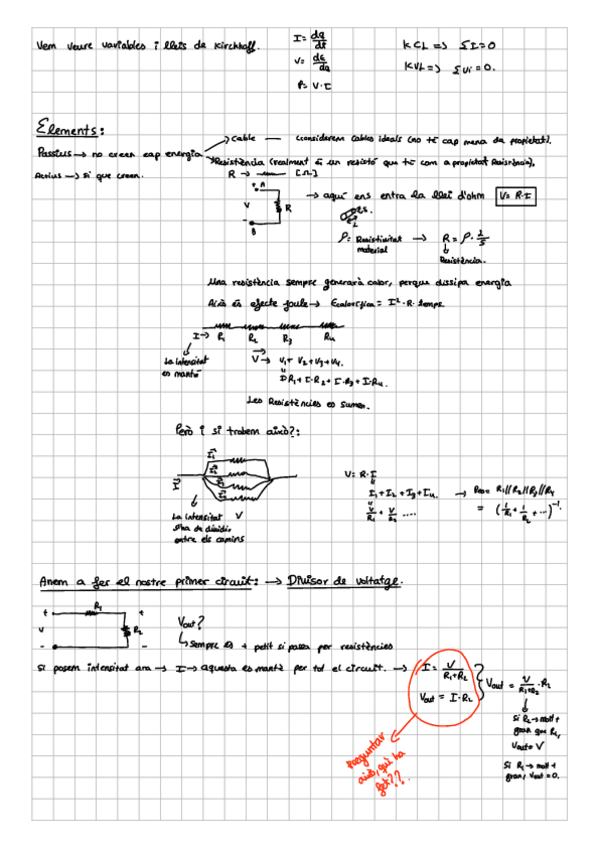 Vem veure variables i lleis de Kirchhoff. I = dq/dt KCL => ΣI = 0
V = dE/dq KVL => ΣVi = 0.
P = V·I
Elements:
Passius → no creen cap energia → Cable — Considerem cables ideals (no té cap mena de propietat).
→ Resistència (realment és un resistó que té com a propietat Resistència).
Actius → Si que creen.
R → [Ω]
A
V R → aquí ens entra la llei d'ohm V = R·I
B
ρ = Resistivitat material → R = ρ · L/S
Resistència.
Una resistència sempre generarà calor, perque dissipa energia
Això és efecte joule → Ecalorífica = I²·R·temps.
I → R1 R2 R3 R4
La intensitat es manté V → V1 + V2 + V3 + V4.
I·R1 + I·R2 + I·R3 + I·R4.
Les Resistències es sumen.
Però i si trobem això?:
I1
I V = R·I
I1 + I2 + I3 + I4. → Req = R1//R2//R3//R4
V/R1 + V/R2 .... = (1/R1 + 1/R2 + ...)⁻¹.
La intensitat V
s'ha de dividir
entre els camins
Anem a fer el nostre primer circuit: → Divisor de voltatge.
+ R1 +
V R2 Vout?
- -
Sempre és + petit si passa per resistències
Si posem intensitat ara → I → aquesta es manté per tot el circuit. → I = V/(R1+R2)
Vout = I·R2 } Vout = V/(R1+R2) · R2
Si R2 → molt +
gran que R1,
Vout = V
Si R1 → molt +
gran, Vout = 0.
Preguntar
això, què ha
fet??